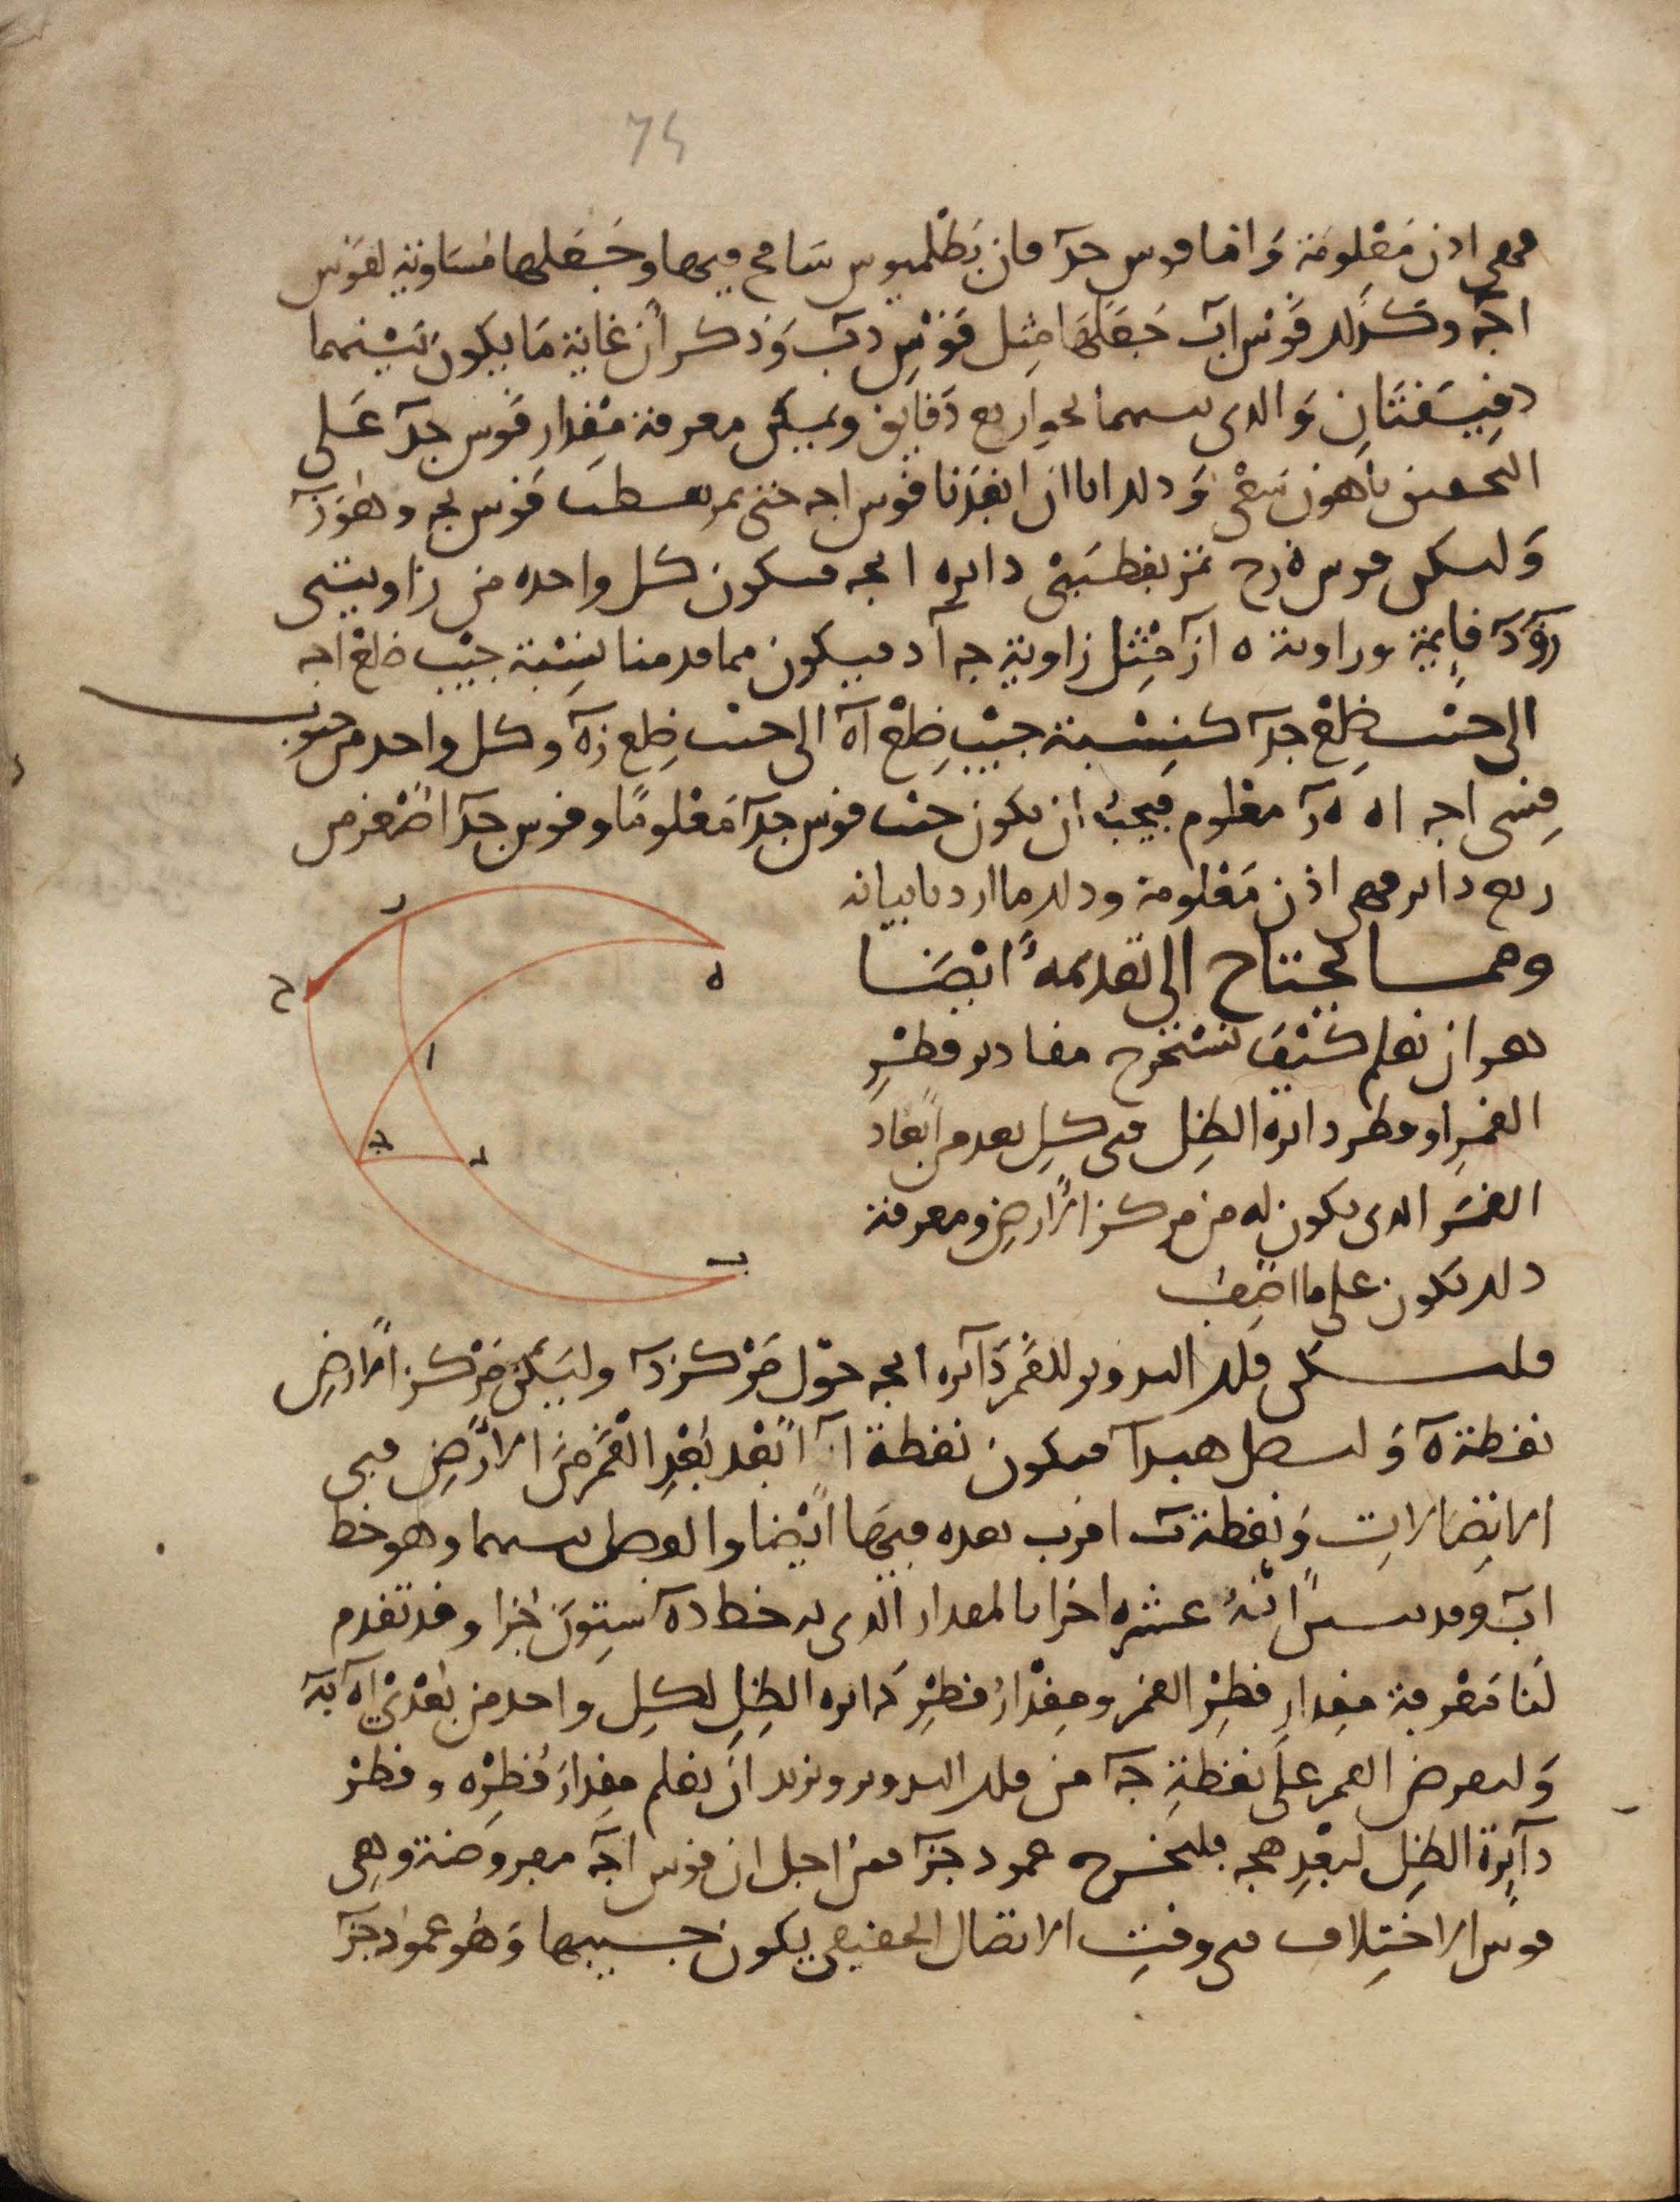 75
فهي اذن مَعْلومَة وَاما قوس جدآ فان بَطْلميوس سَامح فيها وجَعَلها مُسَاوية لقَوس
اجَه وكذلك قَوْس ابَ جَعَلَها مِثل قَوْسِ دبَ وَذكر أن غاية مَا يكون بَيْنهما
دقِيقتَانِ وَالذي بينهما نحو اربع دَقايق ويمكن معرفة مقدار قوس جدآ عَلى
التحقيق باهون سَعْي وَذلك انا ان انفَذنا قوس اجه حتى تمر بقطب قَوس بجه وهُوَ زَ
وَليكن قوس ه زح تمر بقطبَيْ دايره ابجه فيكون كل واحده من زاويتي
زوَ دَ قايمة وزاوية ه از مثل زاوية جه آد فيكون مما قدمنا نسْبة جيْب ضلع اجه
الى جيْب ضِلْع جدآ كنِسْبة جيْب ضِلْع آه الى جيْب ضِلع زه وكل واحد من جيوب
قسي اجه اه ه ز معلوم فيجبُ ان يكون جيْب قوس جدآ مَعْلومًا وقوس جدآ اصْغر من
ربع داير فهي اذن مَعْلومة وذلك ما اردنا بيانه
ومما يحتاج الى تقديمه ايْضَا
هو ان نعلم كيْفَ نسْتخرج مقادير قطْرِ
القمرِ او قطر دايرة الظِل في كل بعد من ابْعاد
القمَر الذي يكون له من مركز الارض ومعرفة
ذلك يكون على ما اصِف
فليكن فلك التدوير للقَمر دَآيره ابجه حوْل مَرْكز دَ وليَكن مَرْكز الارض
نقطة هَ وَليصل هبدا فيكون نقطة اَ ابْعد بُعْدِ القَمر من الارْضِ في
الاتِصَالاتِ وَنقطة بَ اقرب بعده فيهَا ايْضا والفضل بينهما وهو خط
ابَ وقد تبين انهُ عشره اجزا بالمقدار الذي به خط دهَ ستِون جُزا وقد تقدم
لَنا مَعْرفة مِقدارِ قطْر القمر ومِقدْارُ قطْرِ دَايره الظِل لكلِ واحد من بعْدَيْ اه بهَ
وَليعرض القمر علَى نقطةِ جهَ من فلك التدوير ونريد ان نعلم مِقدارَ قُطرِه وقطْر
دآيرة الظِل لبعْدِ هجه فليخرج عمود جزَ فمن اجل ان قوس اجَه مفروضة وهي
قوس الاختِلاف في وقتِ الاتصال الحقيقي يكون جيبها وَهُو عمود جزَ
ر
ح
ه
ا
جه
د
ب